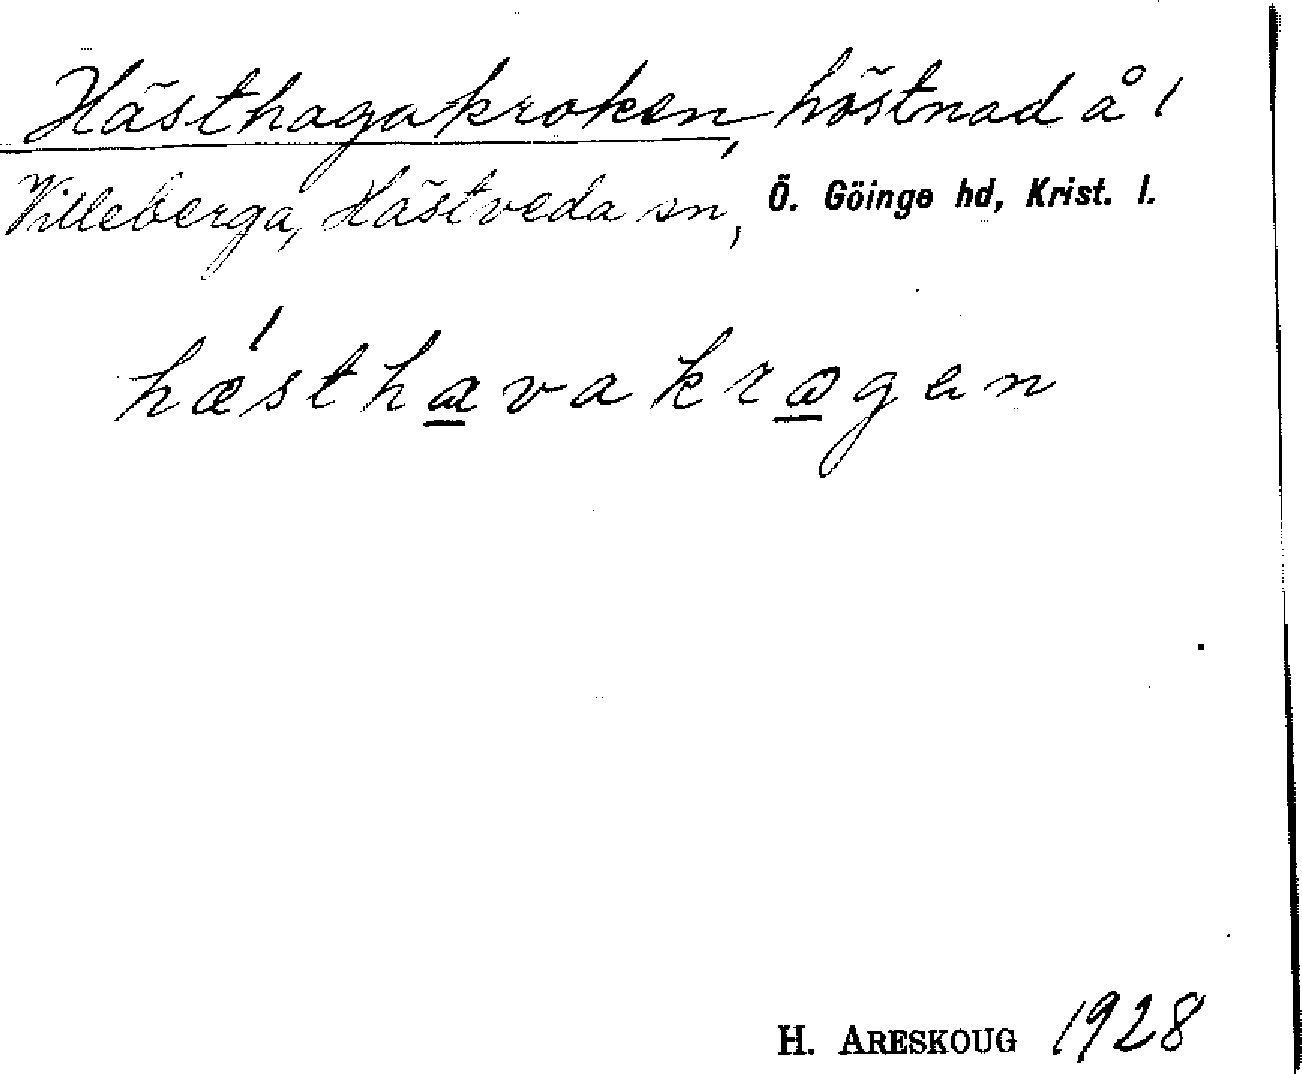 Hästhagakroken, höstnad å 1
Villeberga, Hästveda sn, Ö. Göinge hd, Krist. l.
hǽsthavakrogen
H. ARESKOUG 1928